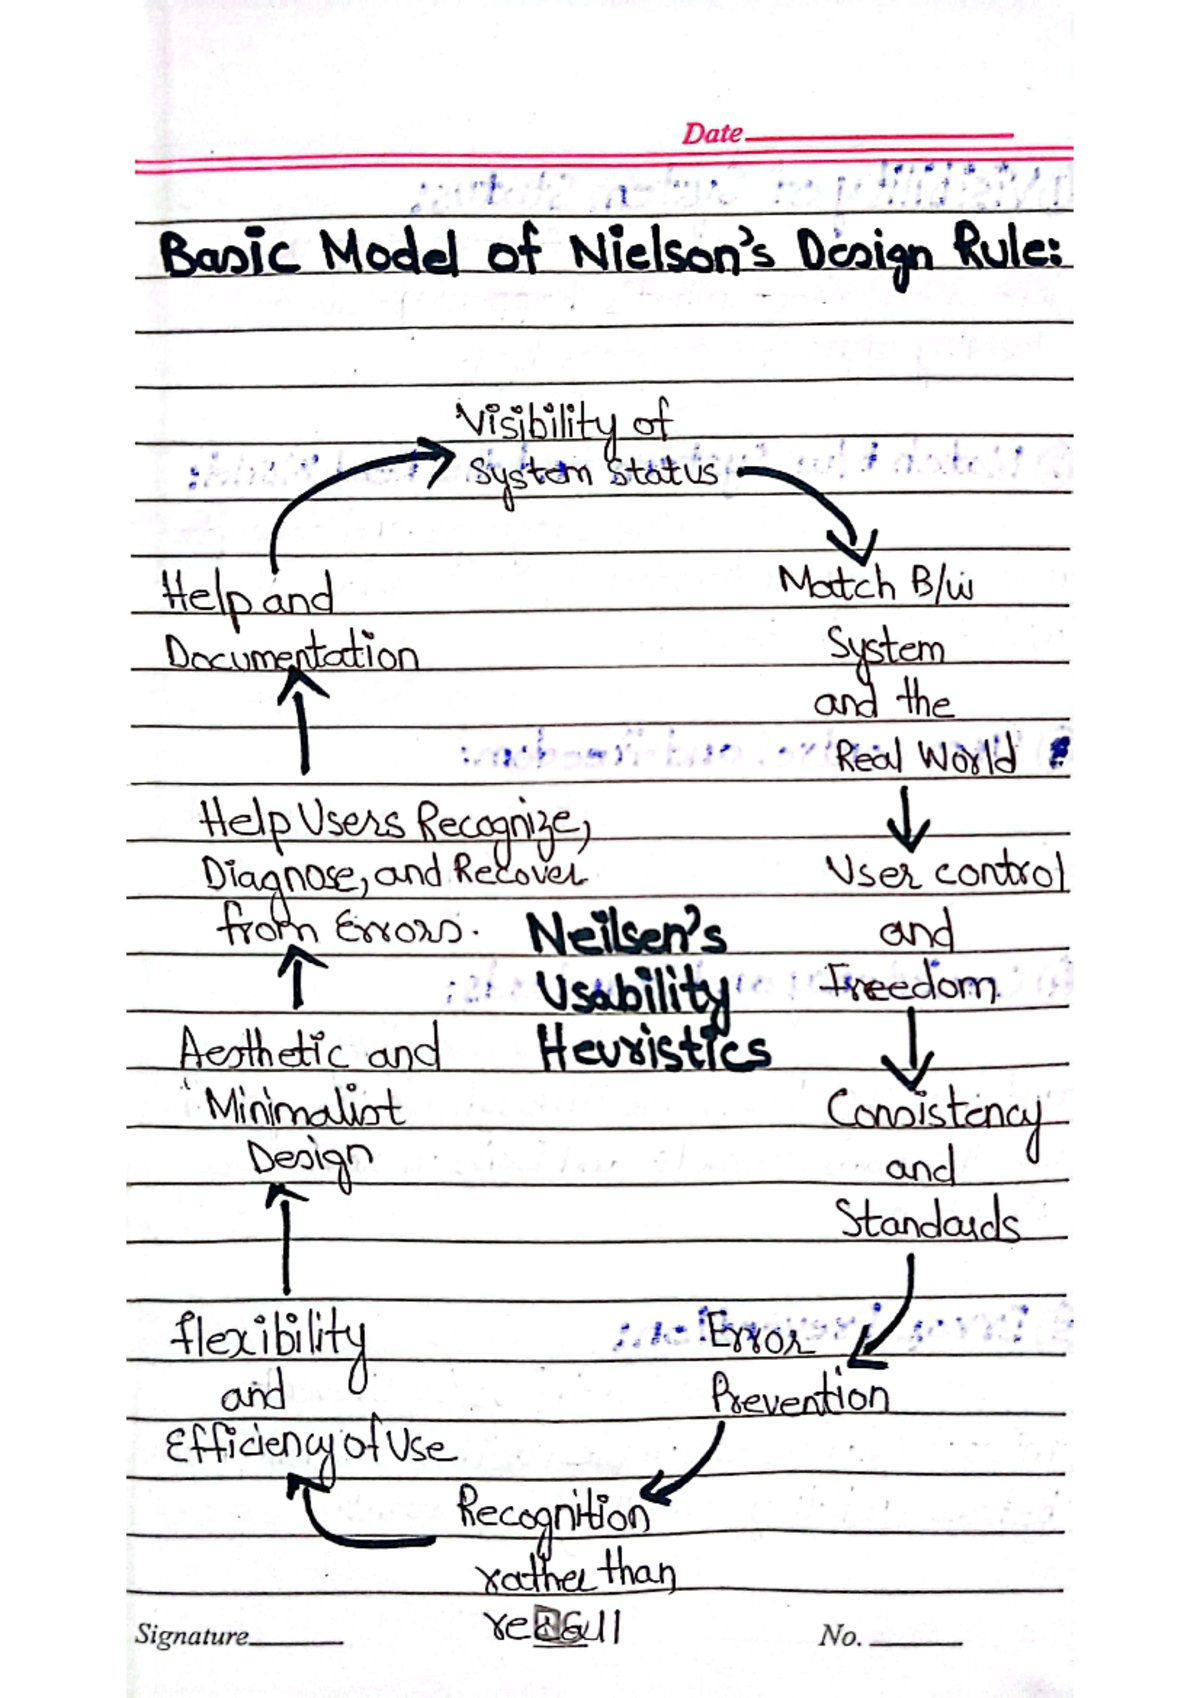 Date
Basic Model of Nielson's Design Rule:
Visibility of
System Status
Match B/w
System
and the
Real World
User control
and
Freedom
Consistency
and
Standards
Error
Prevention
Recognition
rather than
recall
flexibility
and
Efficiency of Use
Aesthetic and
Minimalist
Design
Help Users Recognize,
Diagnose, and Recover
from Errors.
Help and
Documentation
Neilsen's
Usability
Heuristics
Signature
No.